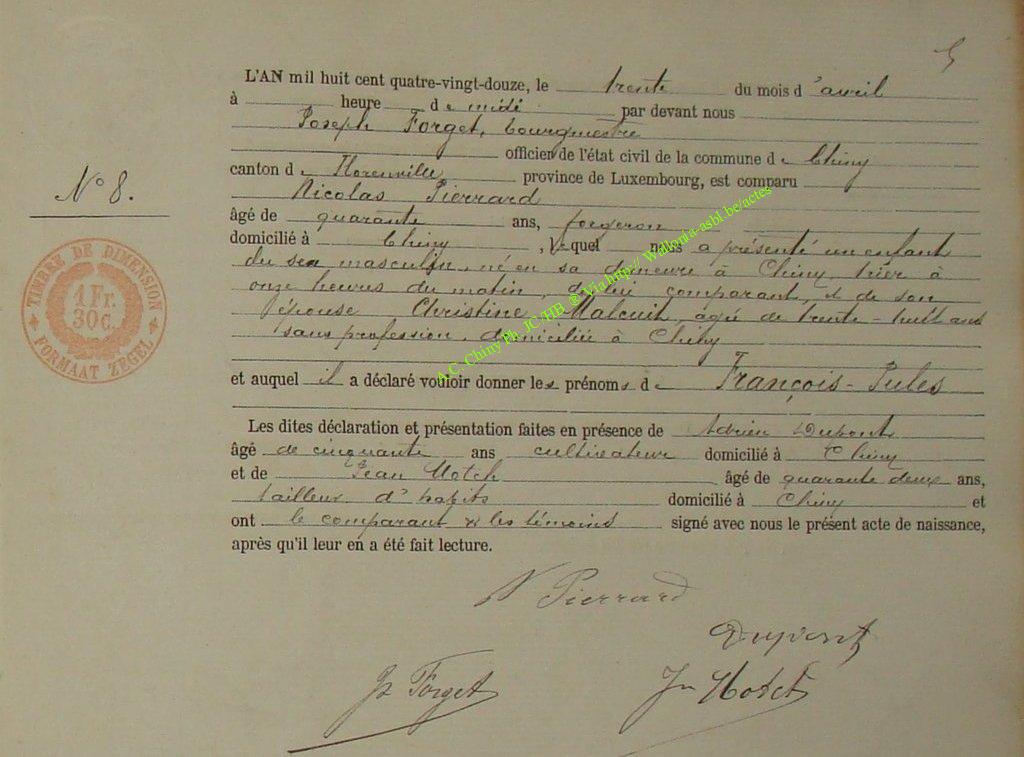 5
L'AN mil huit cent quatre-vingt-douze, le trente du mois d'avril
à heure de midi par devant nous
Joseph Forget, bourgmestre
officier de l'état civil de la commune de Chiny
canton de Florenville province de Luxembourg, est comparu
Nicolas Pierrard
âgé de quarante ans, forgeron
domicilié à Chiny, lequel nous a présenté un enfant
du sexe masculin, né en sa demeure à Chiny, hier à
onze heures du matin, de lui comparant, et de son
épouse Christine Maleuit, âgée de trente-huit ans
sans profession, domiciliée à Chiny
et auquel il a déclaré vouloir donner les prénoms de François-Jules
Les dites déclaration et présentation faites en présence de Adrien Dupont
âgé de cinquante ans cultivateur domicilié à Chiny
et de Jean Hotch âgé de quarante deux ans,
tailleur d'habits domicilié à Chiny et
ont le comparant & les témoins signé avec nous le présent acte de naissance,
après qu'il leur en a été fait lecture.
N° 8.
TIMBRE DE DIMENSION
1 Fr.
30 C.
FORMAAT ZEGEL
A.C. Chiny Ph JC/HB @ Via http:// Wallonia-asbl.be/actes
N Pierrard
Dupont
Js Forget
Jn Hotch